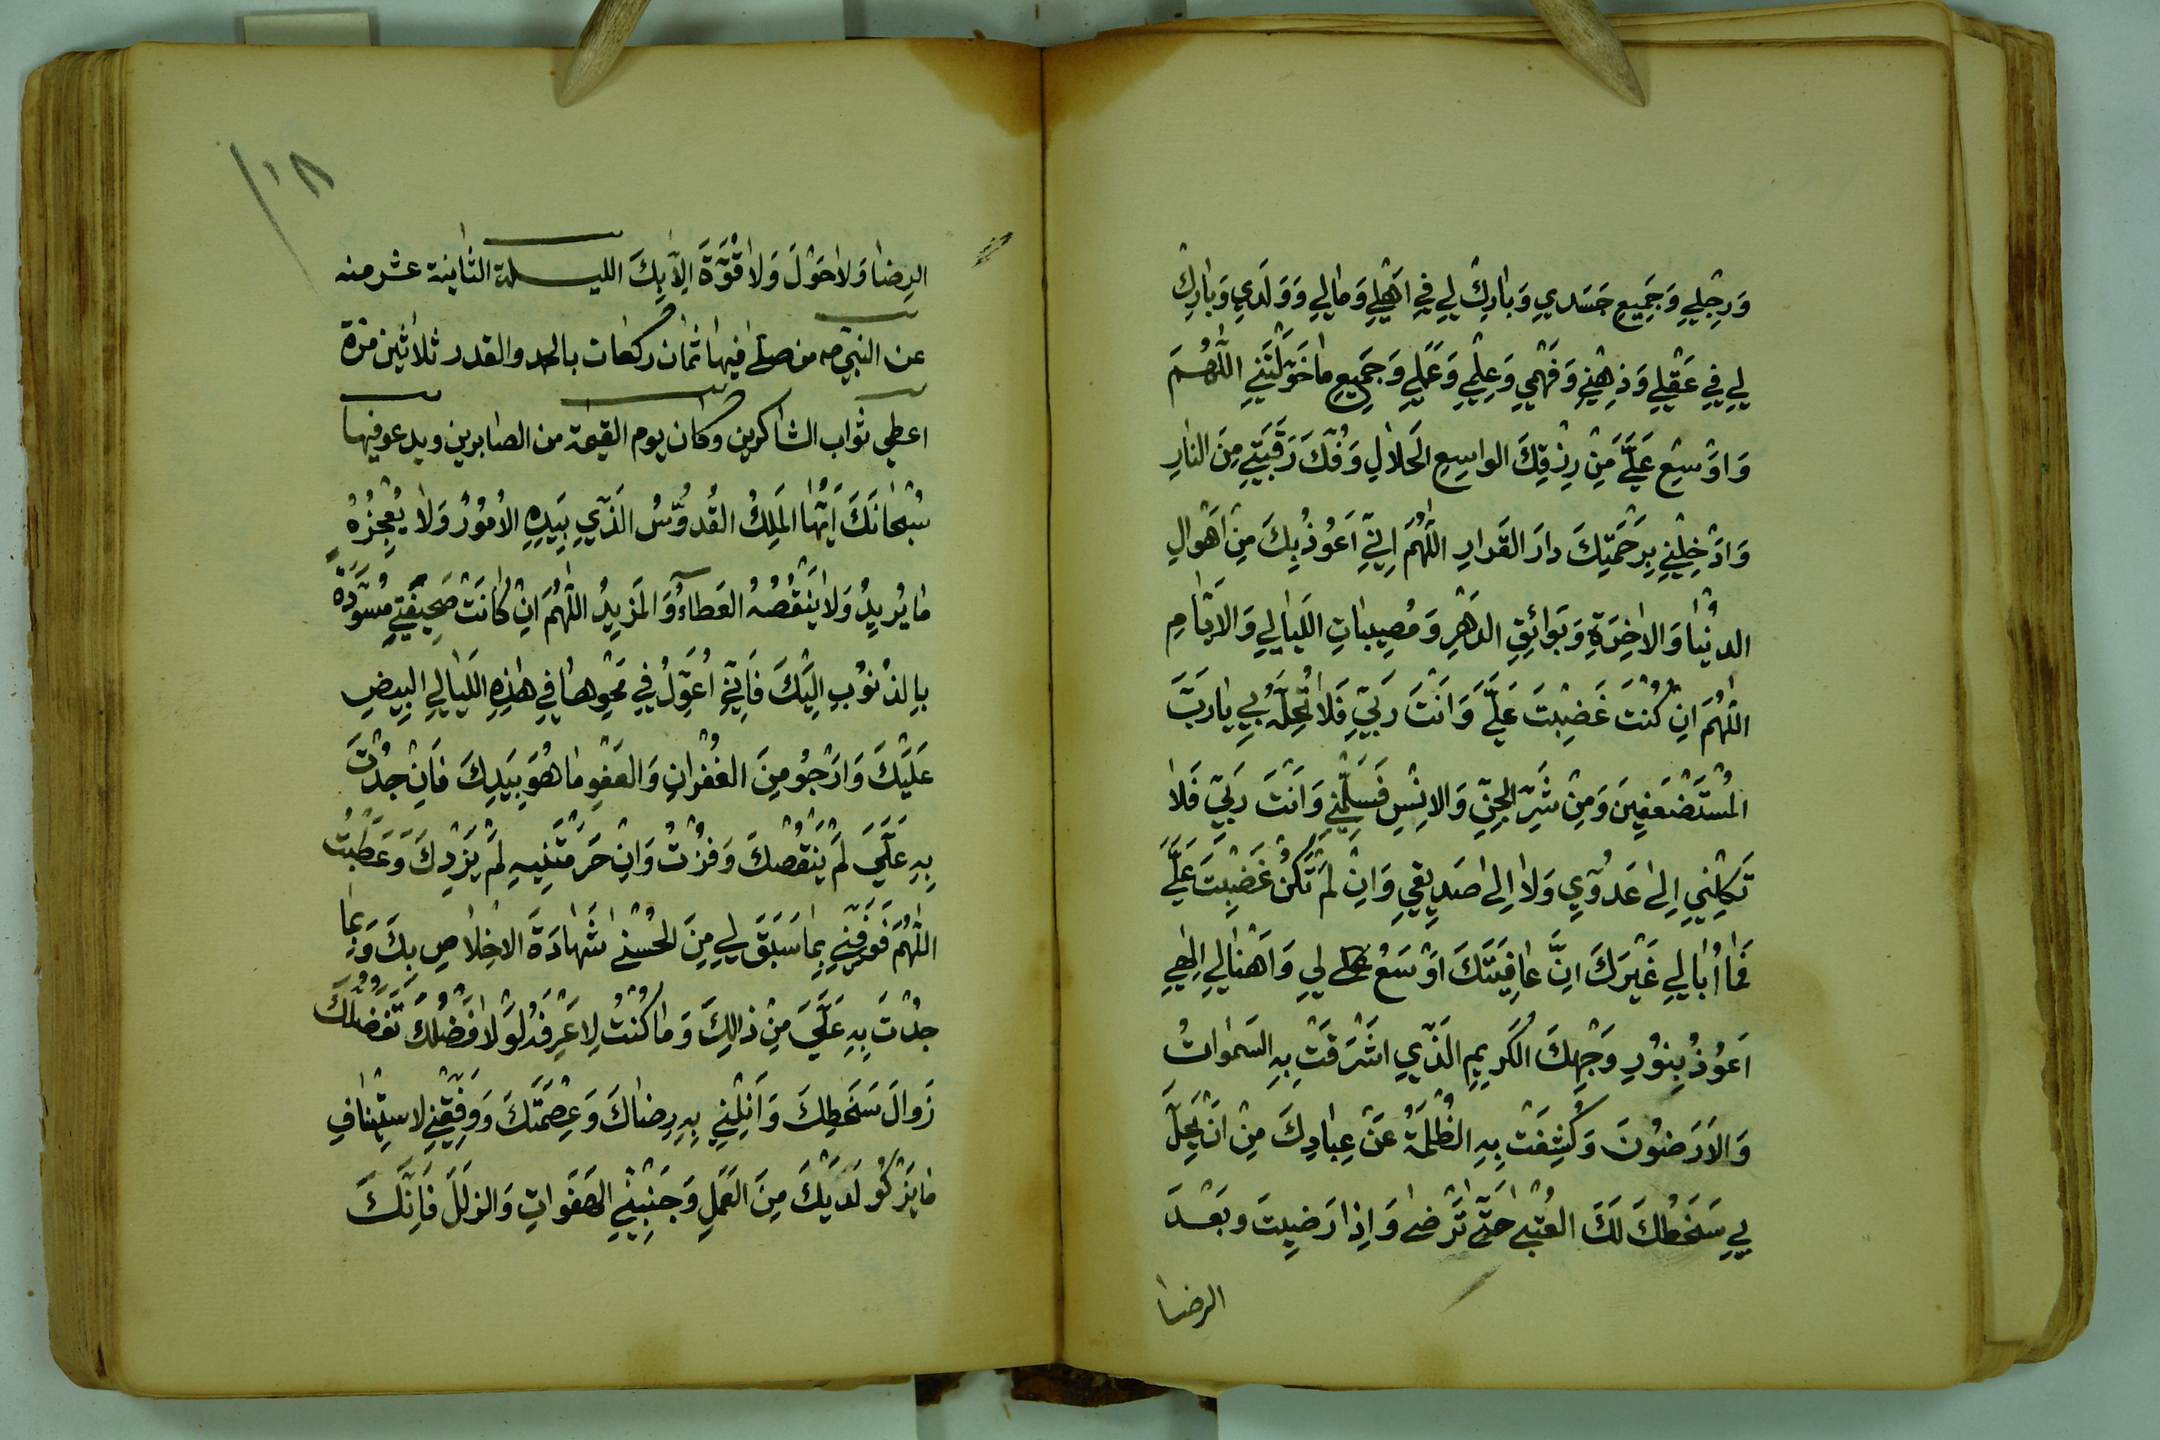 وَرِجْلِي وَجَمِيعِ جَسَدِي وَبَارِكْ لِي فِي اَهْلِي وَمَالِي وَوَلَدِي وَبَارِكْ
لِي فِي عَقْلِي وَذِهْنِي وَفَهْمِي وَعِلْمِي وَعَمَلِي وَجَمِيعِ مَا خَوَّلْتَنِي اللّٰهُمَّ
وَاَوْسِعْ عَلَيَّ مِنْ رِزْقِكَ الواسِعِ الحَلالِ وَفُكَّ رَقَبَتِي مِنَ النارِ
وَادْخِلْنِي بِرَحْمَتِكَ دارَ القَرارِ اللّٰهُمَّ اِنِّي اَعُوذُ بِكَ مِنْ اَهْوالِ
الدُنْيا وَالاخِرَةِ وَبَوائِقِ الدَهْرِ وَمُصِيباتِ اللَيالِي وَالاَيّامِ
اللّٰهُمَّ اِنْ كُنْتَ غَضِبْتَ عَلَيَّ وَاَنْتَ رَبِّي فَلا تُحِلَّهُ بِي يا رَبَّ
المُسْتَضْعَفِينَ وَمِنْ شَرِّ الجِنِّ وَالاِنْسِ فَسَلِّمْنِي وَاَنْتَ رَبِّي فَلا
تَكِلْنِي اِلى عَدُوِّي وَلا اِلى صَدِيقِي وَاِنْ لَمْ تَكُنْ غَضِبْتَ عَلَيَّ
فَما اُبالِي غَيْرَكَ اِنَّ عافِيَتَكَ اَوْسَعُ لِي وَاَهْنالِي اِلٰهِي
اَعُوذُ بِنُورِ وَجْهِكَ الكَرِيمِ الَّذِي اَشْرَقَتْ بِهِ السَمٰواتُ
وَالاَرَضُونَ وَكُشِفَتْ بِهِ الظُلْمَةُ عَنْ عِبادِكَ مِنْ اَنْ يَحِلَّ
بِي سَخَطُكَ لَكَ العُتْبى حَتّى تَرْضى وَاِذا رَضِيتَ وَبَعْدَ
الرضا
١٨
الرِضا وَلا حَوْلَ وَلا قُوَّةَ اِلاّ بِكَ الليلة الثانية عشر منه
عن النبيّ صه من صلى فيها ثمان ركعات بالحمد والقدر ثلاثين مرّة
اعطي ثواب الشاكرين وكان يوم القيمة من الصابرين ويدعو فيها
سُبْحانَكَ اَيُّها المَلِكُ القُدُّوسُ الَّذِي بِيَدِهِ الاُمُورُ وَلا يُعْجِزُهُ
ما يُرِيدُ وَلا يَنْقُصُهُ العَطاءُ وَالمَزِيدُ اللّٰهُمَّ اِنْ كانَتْ صَحِيفَتِي مُسْوَدَّةً
بِالذُنُوبِ اِلَيْكَ فَاِنِّي اُعَوِّلُ فِي مَحْوِها فِي هٰذِهِ اللَيالِي البِيضِ
عَلَيْكَ وَارْجُو مِنَ الغُفْرانِ وَالعَفْوِ ما هُوَ بِيَدِكَ فَاِنْ جُدْتَ
بِهِ عَلَيَّ لَمْ يَنْقُصْكَ وَفُزْتُ وَاِنْ حَرَمْتَنِيهِ لَمْ يَزِدْكَ وَعَطِبْتُ
اللّٰهُمَّ فَوَفِّنِي بِما سَبَقَ لِي مِنَ الحُسْنى شَهادَةَ الاِخْلاصِ بِكَ وَبِما
جُدْتَ بِهِ عَلَيَّ مِنْ ذٰلِكَ وَما كُنْتُ لِاَعْرِفَهُ لَوْلا فَضْلُكَ تَفَضُّلُكَ
زَوالَ سَخَطِكَ وَاَنِلْنِي بِهِ رِضاكَ وَعِصْمَتَكَ وَوَفِّقْنِي لاسْتِيْنافِ
ما يَزْكُو لَدَيْكَ مِنَ العَمَلِ وَجَنِّبْنِي الهَفَواتِ وَالزلَلَ فَاِنَّكَ